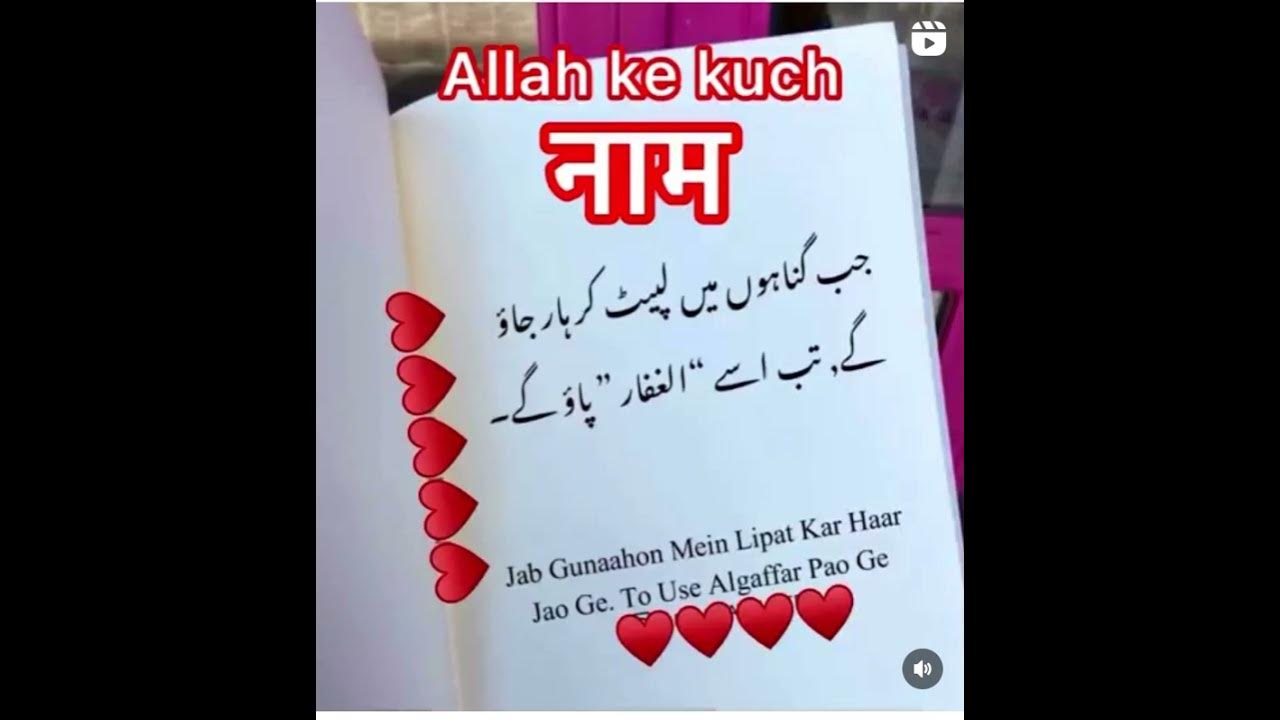 Allah ke kuch
नाम
جب گناہوں میں لپیٹ کر ہار جاؤ
گے, تب اسے “الغفار” پاؤ گے۔
Jab Gunaahon Mein Lipat Kar Haar
Jao Ge. To Use Algaffar Pao Ge